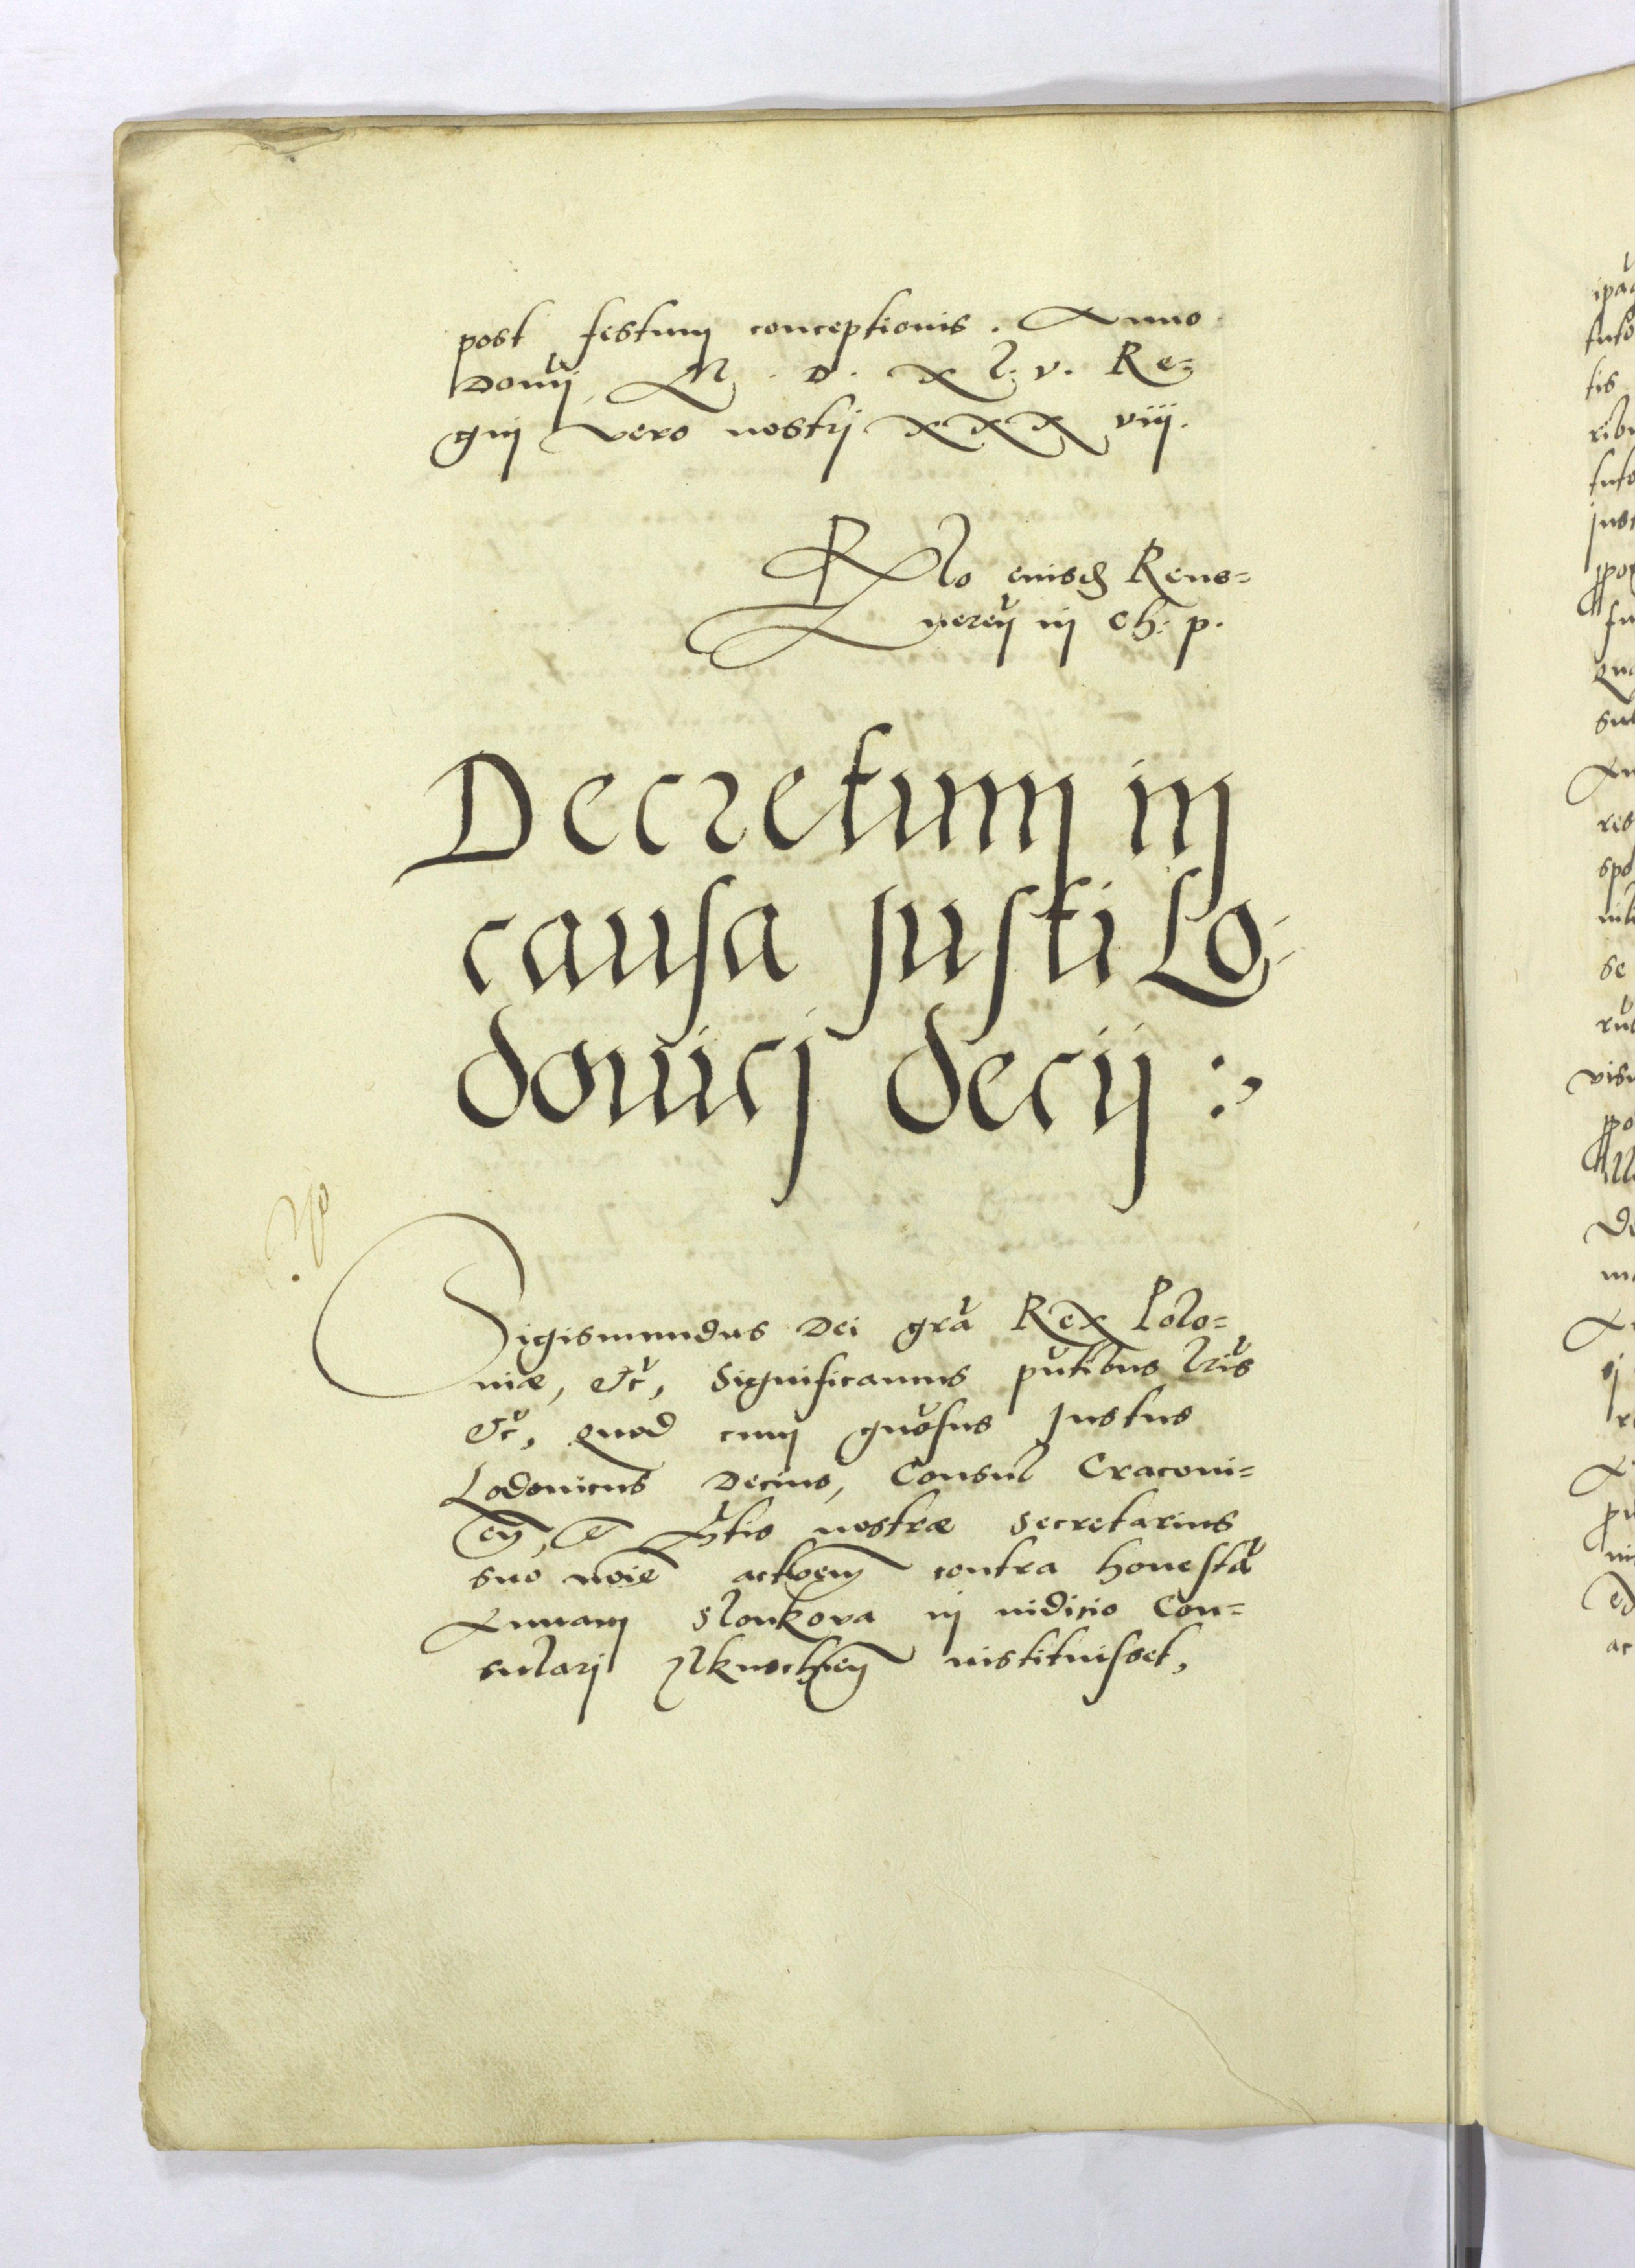 post festum conceptionis. Anno
Domīj, M. D. X L. V. Re=
gnj vero nostrj XXX viij.
Rlo eiusd Reue=
in Ch: p.
Decretum in
causa Justi Lo-
douicj Decij :
Sigismundus Dei gra Rex Polo=
niæ, etc, Significamus pntibus lris
etc, quod cum gnosus Justus
Lodouicus Decius, Consul Cracoui=
en, et Mtis nostræ Secretarius
suo noie actoem contra honestā
Annam Slonkova in iudicio Con=
sularj Ilkusieñ instituisset,